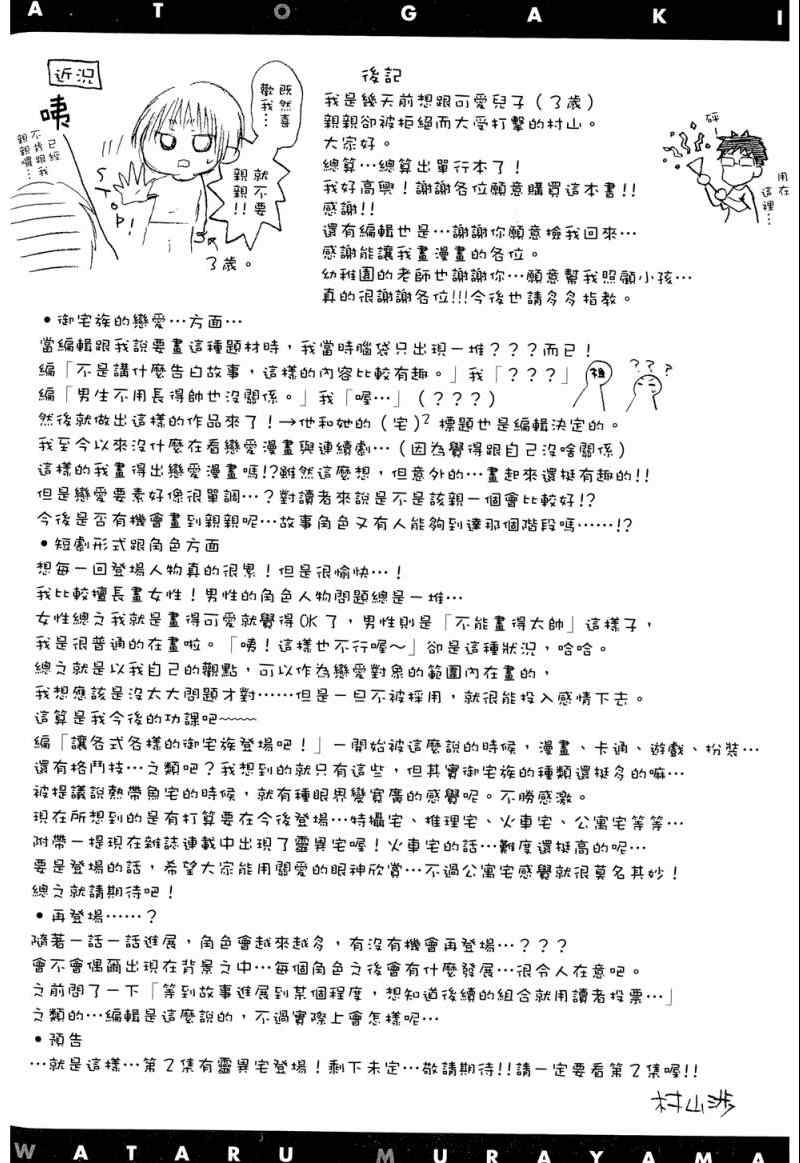 ATOGAKI
近況
咦
已經
不肯跟我
親親嚕…
既然喜
歡我…
就
不要
親親!!
STOP!
3歲。
後記
我是幾天前想跟可愛兒子（3歲）
親親卻被拒絕而大受打擊的村山。
大家好。
總算…總算出單行本了！
我好高興！謝謝各位願意購買這本書!!
感謝!!
還有編輯也是…謝謝你願意撿我回來…
感謝能讓我畫漫畫的各位。
幼稚園的老師也謝謝你…願意幫我照顧小孩…
真的很謝謝各位!!!今後也請多多指教。
砰!
用在
這裡…
•御宅族的戀愛…方面…
當編輯跟我說要畫這種題材時，我當時腦袋只出現一堆？？？而已！
編「不是講什麼告白故事，這樣的內容比較有趣。」我「？？？」
編「男生不用長得帥也沒關係。」我「喔…」（？？？）
？？？
然後就做出這樣的作品來了！→他和她的（宅）² 標題也是編輯決定的。
我至今以來沒什麼在看戀愛漫畫與連續劇…（因為覺得跟自己沒啥關係）
這樣的我畫得出戀愛漫畫嗎!?雖然這麼想，但意外的…畫起來還挺有趣的!!
但是戀愛要素好像很單調…？對讀者來說是不是該親一個會比較好!?
今後是否有機會畫到親親呢…故事角色又有人能夠到達那個階段嗎……!?
•短劇形式跟角色方面
想每一回登場人物真的很累！但是很愉快…！
我比較擅長畫女性！男性的角色人物問題總是一堆…
女性總之我就是畫得可愛就覺得OK了，男性則是「不能畫得太帥」這樣子，
我是很普通的在畫啦。「咦！這樣也不行喔～」卻是這種狀況，哈哈。
總之就是以我自己的觀點，可以作為戀愛對象的範圍內在畫的，
我想應該是沒太大問題才對……但是一旦不被採用，就很能投入感情下去。
這算是我今後的功課吧~~~~
編「讓各式各樣的御宅族登場吧！」一開始被這麼說的時候，漫畫、卡通、遊戲、扮裝…
還有格鬥技…之類吧？我想到的就只有這些，但其實御宅族的種類還挺多的嘛…
被提議說熱帶魚宅的時候，就有種眼界變寬廣的感覺呢。不勝感激。
現在所想到的是有打算要在今後登場…特攝宅、推理宅、火車宅、公寓宅等等…
附帶一提現在雜誌連載中出現了靈異宅喔！火車宅的話…難度還挺高的呢…
要是登場的話，希望大家能用關愛的眼神欣賞…不過公寓宅感覺就很莫名其妙！
總之就請期待吧！
•再登場……？
隨著一話一話進展，角色會越來越多，有沒有機會再登場…？？？
會不會偶爾出現在背景之中…每個角色之後會有什麼發展…很令人在意吧。
之前問了一下「等到故事進展到某個程度，想知道後續的組合就用讀者投票…」
之類的…編輯是這麼說的，不過實際上會怎樣呢…
•預告
…就是這樣…第2集有靈異宅登場！剩下未定…敬請期待!!請一定要看第2集喔!!
村山渉
WATARU MURAYAMA